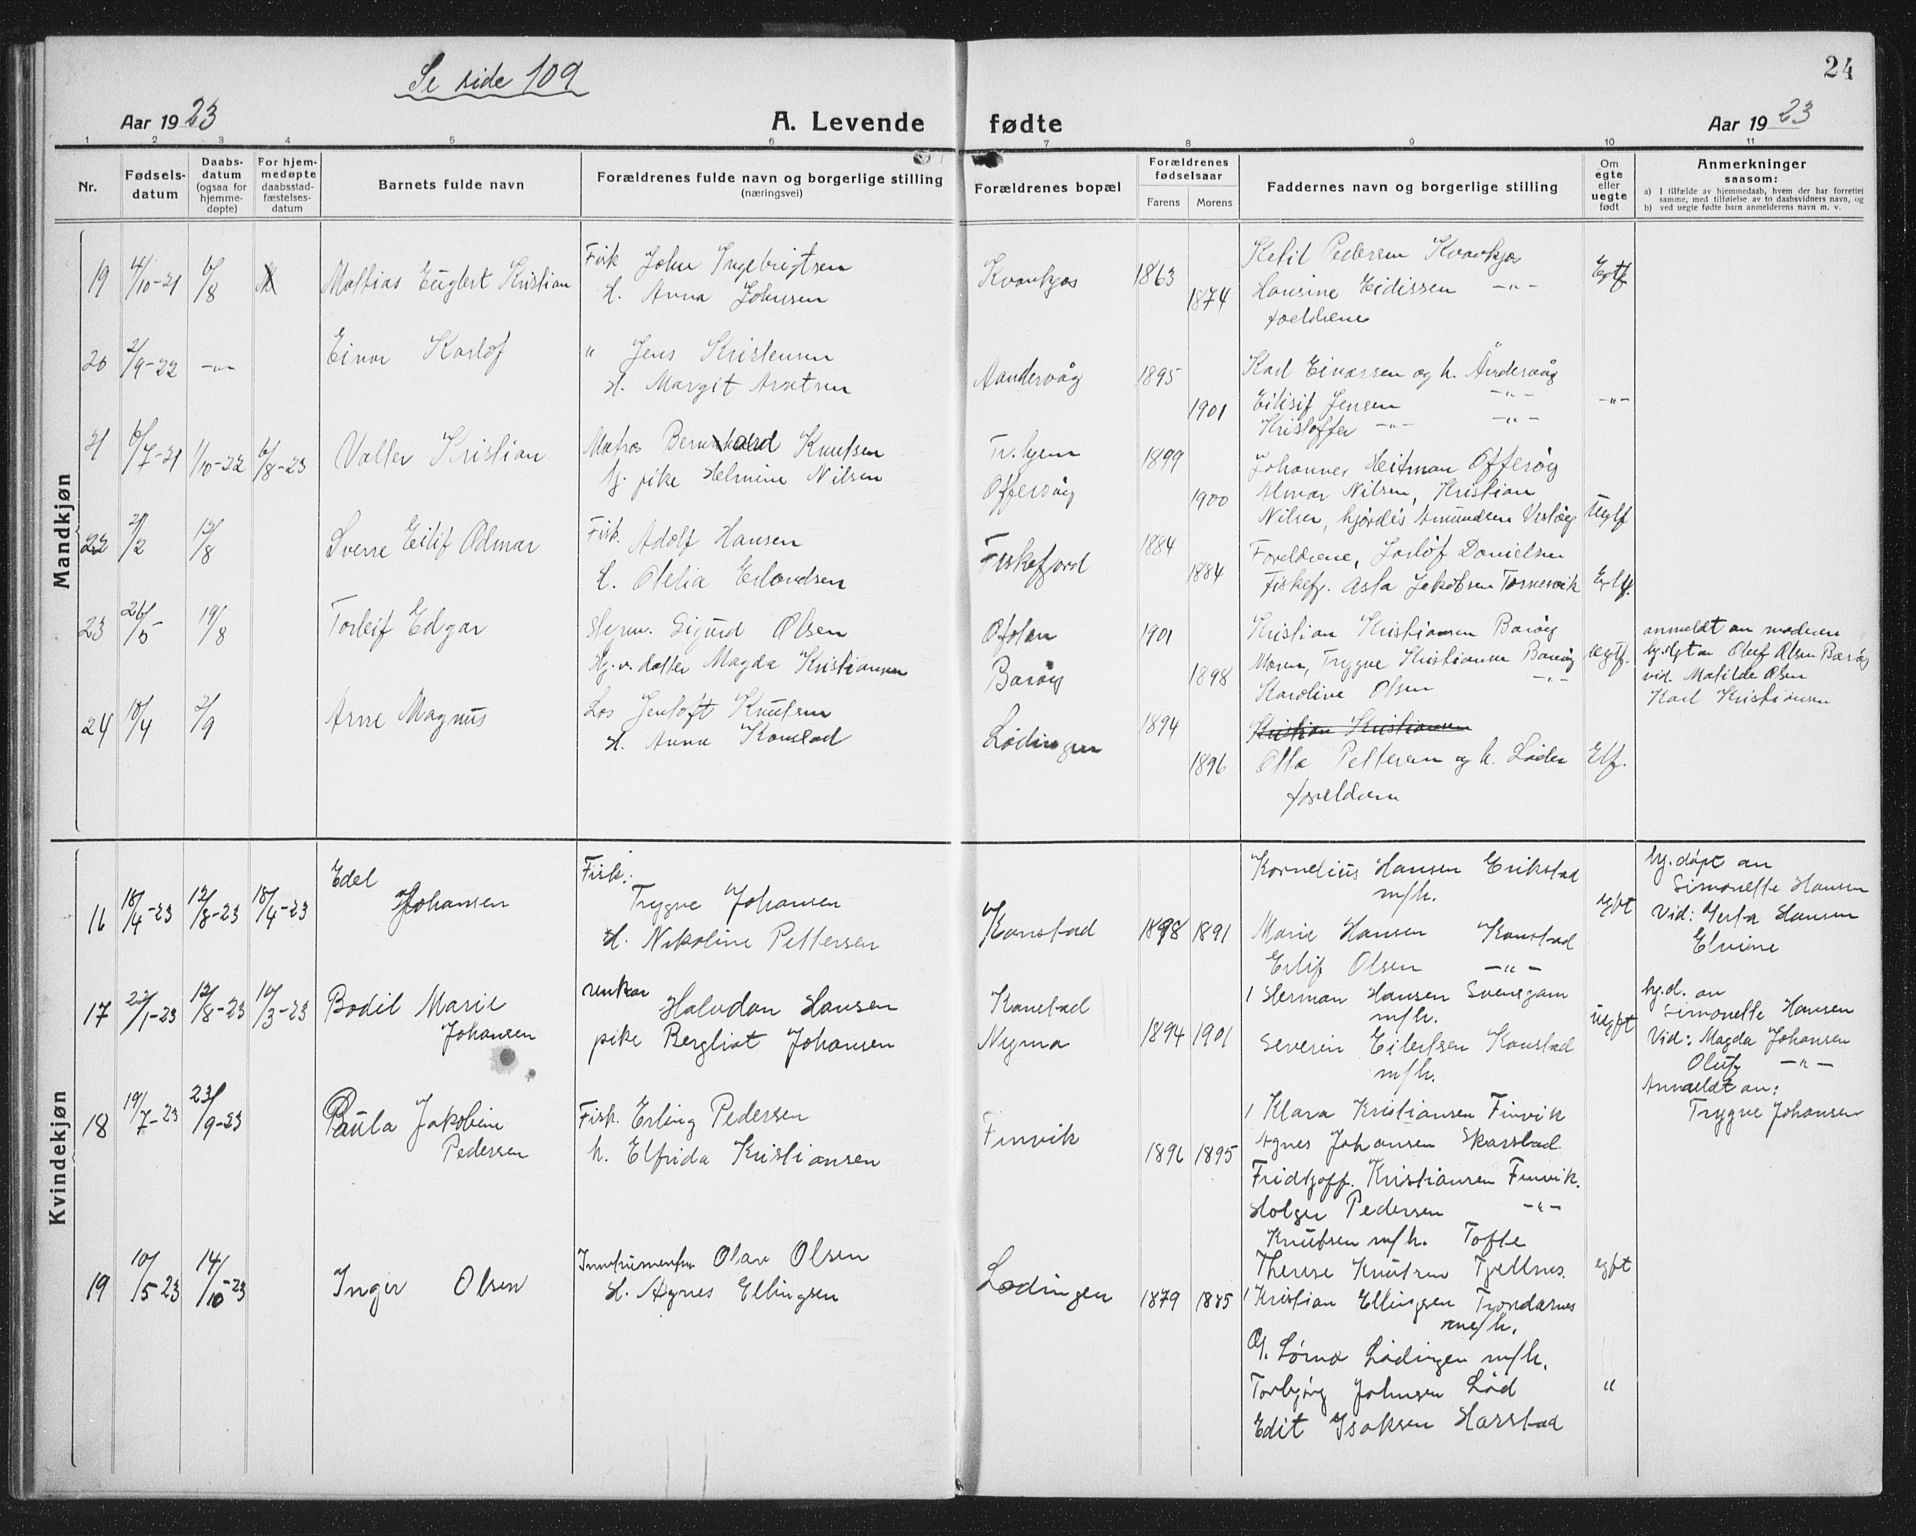 Se side 109
24
Aar 1923
A. Levende fødte
Aar 1923
1 2 3 4 5 6 7 8 9 10 11
Nr.
Fødsels-
datum
Daabs-
datum
(ogsaa for
hjemme-
døpte)
For hjem-
medøpte
daabsstad-
fæstelses-
datum
Barnets fulde navn
Forældrenes fulde navn og borgerlige stilling
(næringsvei)
Forældrenes bopæl
Forældrenes
fødselsaar
Farens Morens
Faddernes navn og borgerlige stilling
Om
egte
eller
uegte
født
Anmerkninger
saasom:
a) I tilfælde av hjemmedaab, hvem der har forrettet
samme, med tilføielse av to daabsvidners navn, og
b) ved uegte fødte barn anmelderens navn m. v.
Mandkjøn
19 4/10-21 6/8 Mathias Englert Kristian
Fisk John Ingebrigtsen
H. Anna Johnsen
Kvavkjos 1863
1874
Ketil Pedersen Kvavkjos
Hansine Eidissen -"-
foreldrene
Egtf
20 2/9-22 -"- Einar Karlof
" Jens Kristensen
H. Margit Arntsen
Aandervåg 1895
1901
Karl Einarsen og h. Åndervåg
Eilisif Jensen -"-
Kristoffer -"- -"-
-"-
21 6/7-21 1/10-22 6/8-23 Valter Kristian
Matros Bernhard Knutsen
pike Helmine Nilsen
Tr.hjem 1899
Offersøy 1900
Johannes Heitman Offersøy
Almar Nilsen, Kristian
Nilsen, hjørdis Amundsen
Uegtf
22 2/2 12/8 Sverre Eilif Odmar
Fisk. Adolf Hansen
H. Otelia Erlandsen
Fiskefjord 1884
1884
Foreldrene, Jarlof Danielsen
Fiskefj. Asta Jakobsen
Egtf.
23 26/5 19/8 Torleif Edgar
Styrm. Sigurd Olsen
Hj.v. datter Magda Kristiansen
Ofoten 1901
Barøy 1898
Kristian Kristiansen Barøy
Moren, Trygve Kristiansen Barøy
Karoline Olsen -"-
uegtf.
anmeldt av moderen
hj.dpt av Oluf Olsen Barøy
vid. Matilde Olsen
Karl Kristiansen
24 10/4 2/9 Arne Magnus
Los Jentoft Knutsen
H. Anna Kanstad
Lødingen 1894
1896
Kristian Kristiansen
Otto Pettersen og h. Løden
foreldrene
Etf.
Kvindekjøn
16 18/4-23 12/8-23 18/4-23 Edel
Johansen
Fisk.:
Trygve Johansen
H. Nikoline Pettersen
Kanstad 1898 1891
Kornelius Hansen Erikstad
m/h.
Marie Hansen Kanstad
Erlif Olsen -"-
egft
hj.døpt av
Simonette Hansen
Vid: Herta Hansen
Elvine
17 22/1-23 12/8-23 10/3-23 Bodil Marie
Johansen
unkar Halvdan Hansen
pike Bergliot Johansen
Kanstad
Nygma 1894 1901
1 Herman Hansen Svensgam
m/h.
Severin Eilertsen Kanstad
m/h.
uegft
hj.d. av
Simonette Hansen
Vid: Magda Johansen
Oluf -"-
Anmeldt av:
Trygve Johansen
18 19/7-23 23/9-23 Paula Jakobine
Pedersen
Fisk. Erling Pedersen
h. Elfrida Kristiansen
Finvik 1896 1895
1 Klara Kristiansen Finvik
Agnes Johansen Skarstad
Fridtjoff. Kristiansen Finvik.
Holger Pedersen -"-
Knutsen m/h. Tofte
Therese Knutsen Tjellnes.
egft
19 10/5-23 14/10-23 Inger Olsen
Olav Olsen
H. Agnes Ellingsen
Lødingen 1879 1885
1 Kristian Ellingsen Trondarnes
m/h.
Lødingen m/h.
Torbjørg Johnsen Lød
Edit Isaksen Harstad
"